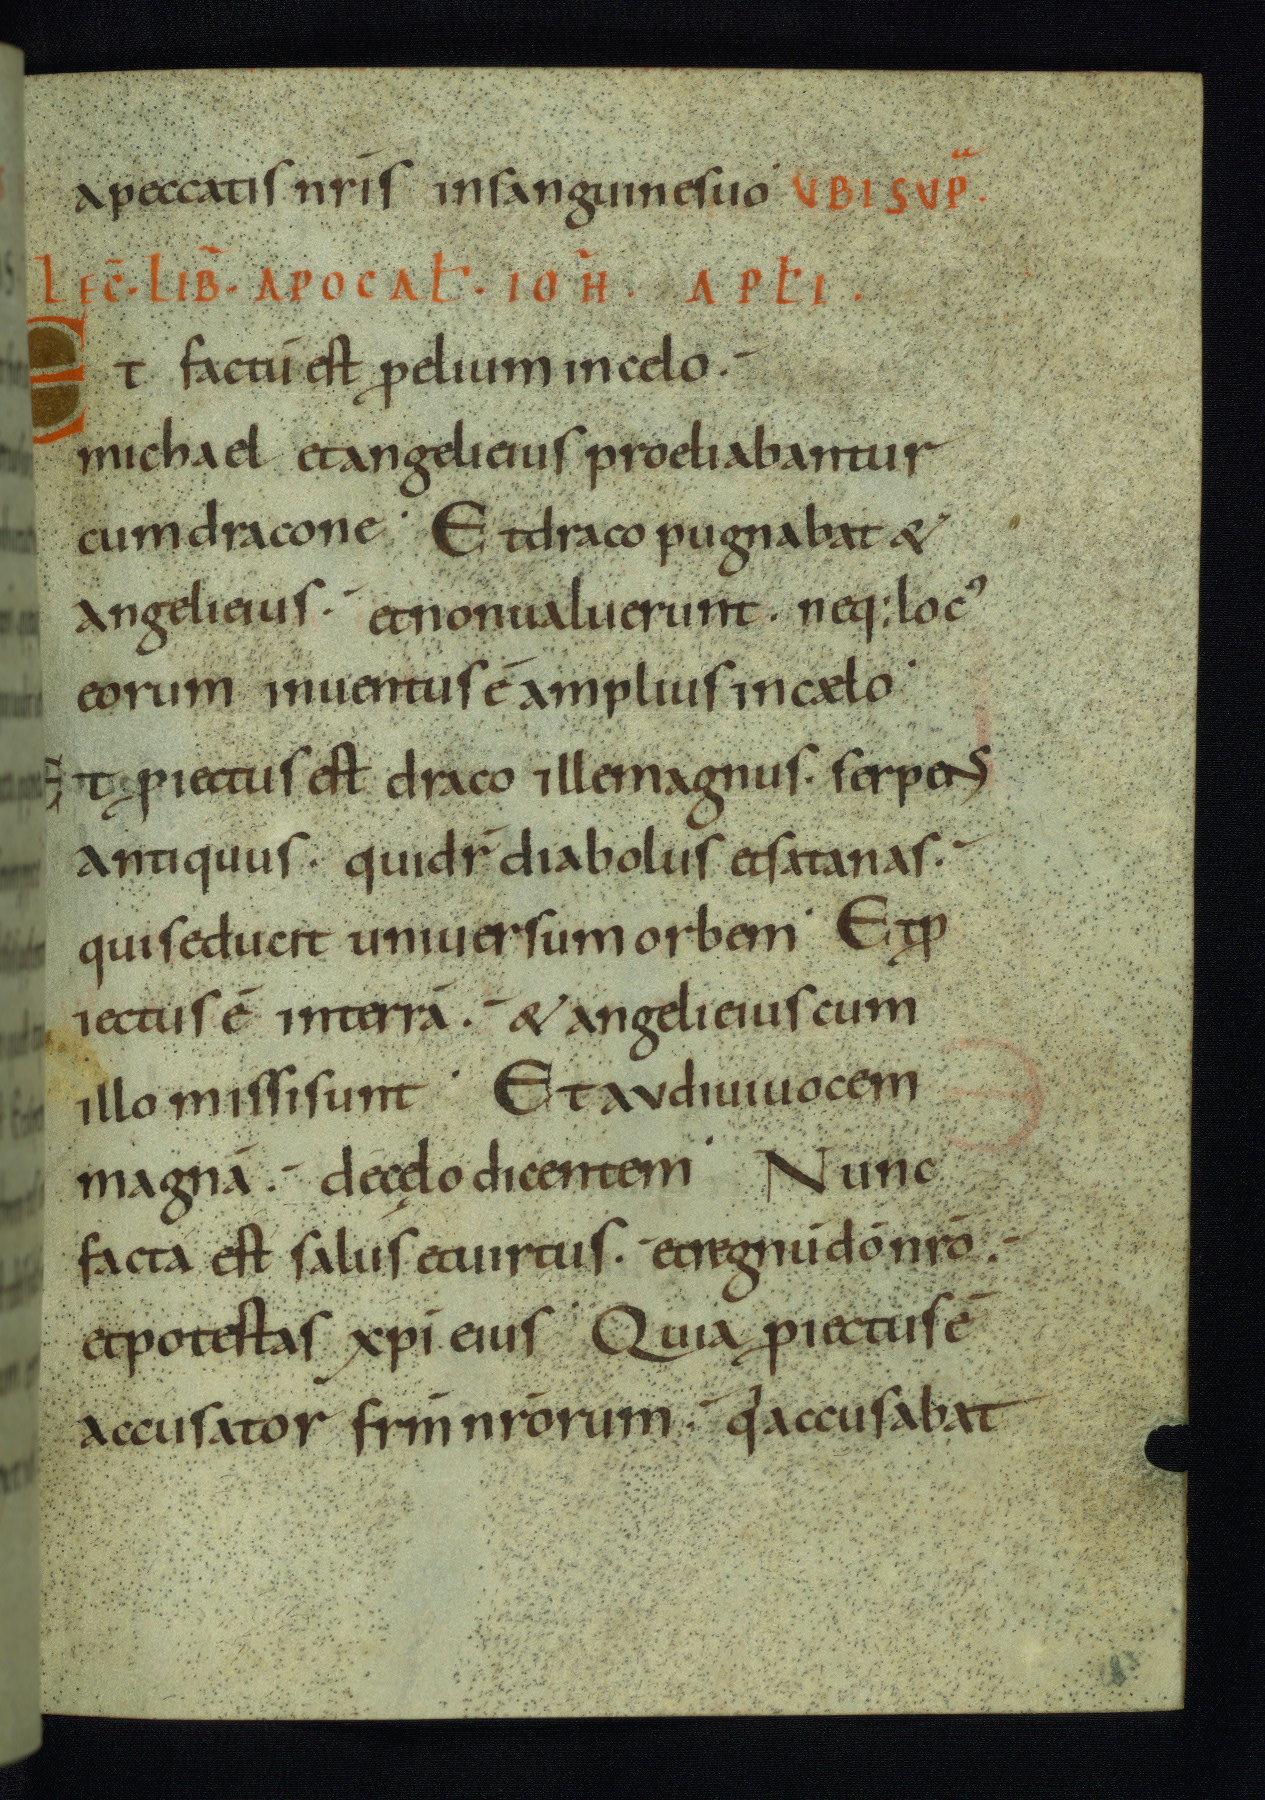 apeccatis nr̄is insanguinesuo VBI SVP̄.
LEC̄. LIB̄. APOCAL̄. IOH̄. APL̄I.
Et factū est p̱elium incelo.
michael etangelieius proeliabantur
cumdracone Etdraco pugnabat &
angelieius. etnonualuerunt. neq; loc᾽
eorum inuentus ē amplius incælo
Et ꝓiectus est draco illemagnus. serpens
antiquus. quidr̄ diabolus etsatanas.
quiseducit uniuersum orbem Etꝓ
iectus ē interrā. & angelieius cum
illo missisunt Et audiuiuocem
magnā. decęlo dicentem Nunc
facta est salus etuirtus. etregnū dō nrō.
etpotestas xp̄i eius Quia ꝓiectus ē
accusator frm̄ nrōrum. qͥaccusabat